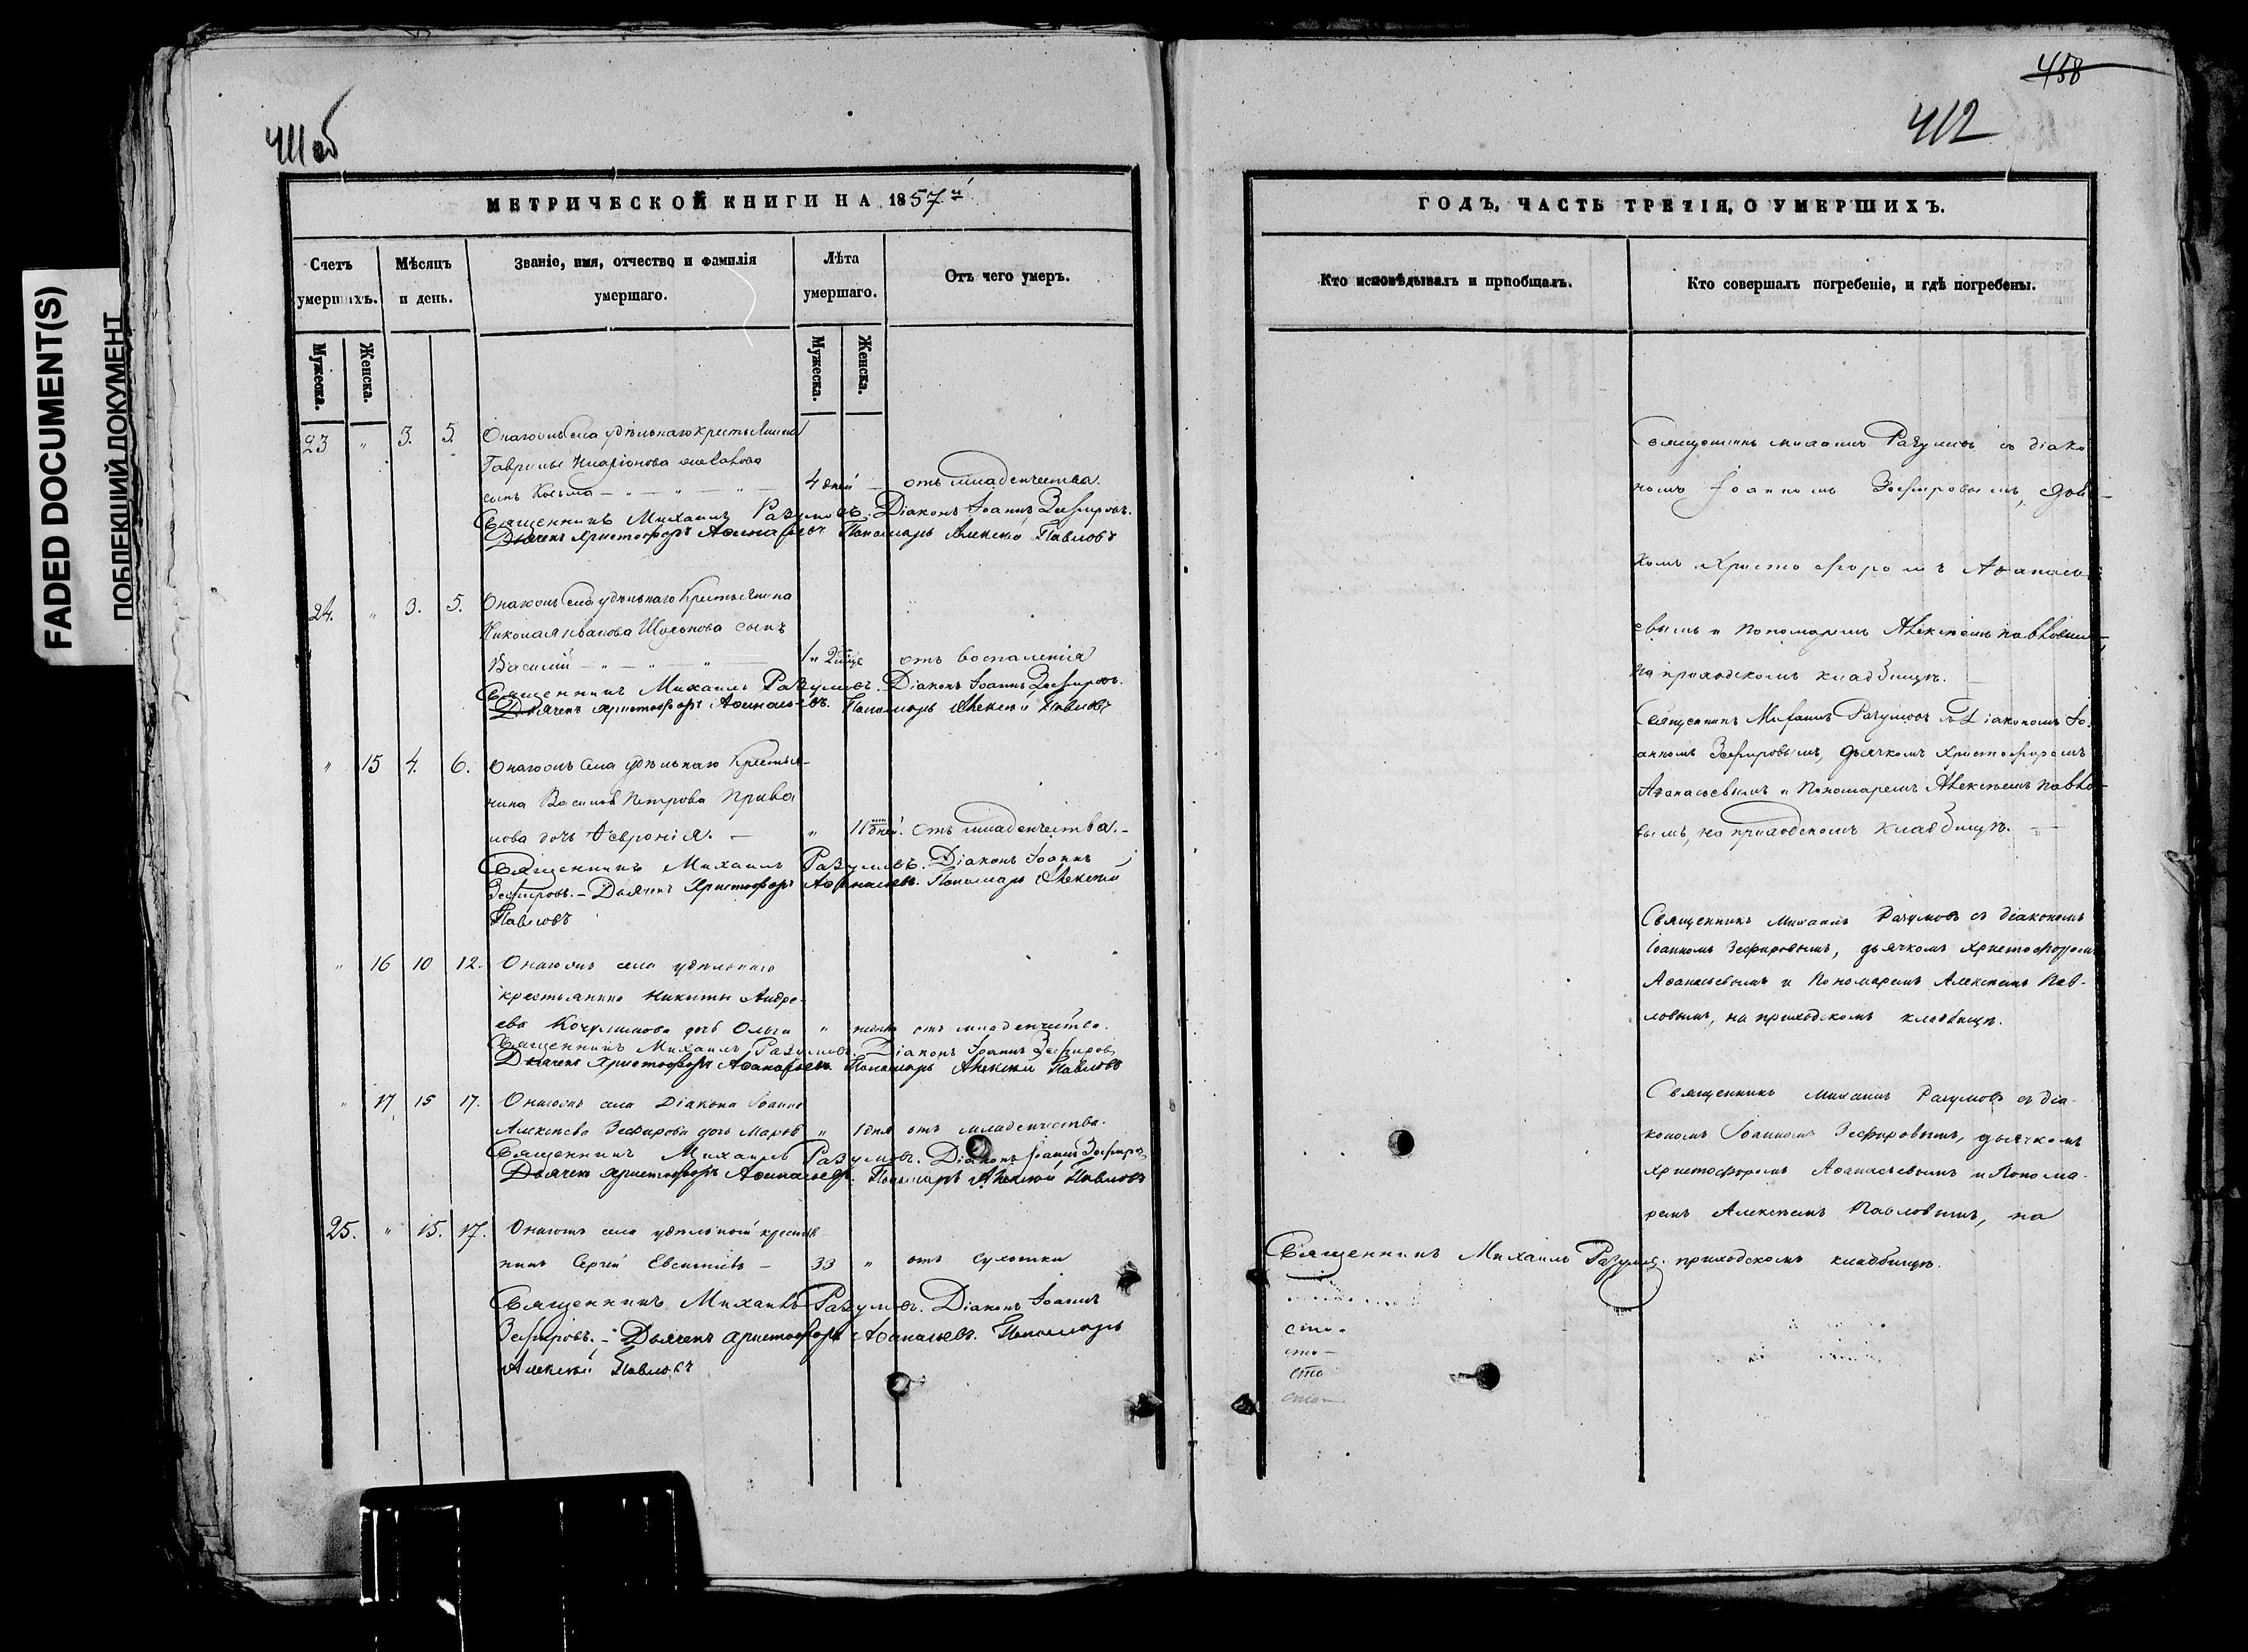 FADED DOCUMENT(S)
ПОБЛЕКШИЙ ДОКУМЕНТ
411 об
МЕТРИЧЕСКОЙ КНИГИ НА 1857й
Счетъ умершихъ.
Мѣсяцъ и день.
Званіе, имя, отчество и фамилія умершаго.
Лѣта умершаго.
Отъ чего умеръ.
Мужеска.
Женска.
Мужеска.
Женска.
23 " 3. 5. Онагожъ села удѣльнаго крестьянина
Гаврилы Иларіонова
сынъ Косьма — " — " — " — 4 дней — отъ младенчества.
Священникъ Михаилъ Разумовъ. Діаконъ Іоаннъ Зефировъ.
Дьячекъ Христофоръ Аѳанасьевъ Пономарь Алексѣй Павловъ
24. " 3. 5. Онагожъ села удѣльнаго крестьянина
Николая Иванова сынъ
Василій — " — " — " — 1 " 2 отъ воспаленія
Священникъ Михаилъ Разумовъ. Діаконъ Іоаннъ Зефировъ.
Дьячекъ Христофоръ Аѳанасьевъ. Пономарь Алексѣй Павловъ
" 15 4. 6. Онагожъ села удѣльнаго крестья-
нина Василья Петрова Прива
лова дочь Февронія. — " 11 дней. отъ младенчества. -
Священникъ Михаилъ Разумовъ. Діаконъ Іоаннъ
Зефировъ. - Дьячекъ Христофоръ Аѳанасьевъ. Пономарь Алексѣй
Павловъ
" 16 10 12. Онагожъ села удѣльнаго
крестьянина Никиты Андре-
ева дочь Ольга " отъ младенчества.
Священникъ Михаилъ Разумовъ. Діаконъ Іоаннъ Зефировъ
Дьячекъ Христофоръ Аѳанасьевъ. Пономарь Алексѣй Павловъ
" 17 15 17. Онагожъ села Діакона Іоанна
Алексѣева Зефирова дочь " 1 дня отъ младенчества.
Священникъ Михаилъ Разумовъ. Діаконъ Іоаннъ Зефировъ
Дьячекъ Христофоръ Аѳанасьевъ. Пономарь Алексѣй Павловъ
25. " 15. 17. Онагожъ села удѣльный крестья-
нинъ Сергій — 33 " отъ сухотки
Священникъ Михаилъ Разумовъ. Діаконъ Іоаннъ
Зефировъ. - Дьячекъ Христофоръ Аѳанасьевъ. Пономарь
Алексѣй Павловъ
458
412
ГОДЪ, ЧАСТЬ ТРЕТІЯ, О УМЕРШИХЪ.
Кто исповѣдывалъ и пріобщалъ.
Кто совершалъ погребеніе, и гдѣ погребены.
Священникъ Михаилъ Разумовъ съ діако
номъ Іоанномъ Зефировымъ, дьяч-
комъ Христофоромъ Аѳанась
евымъ и Пономаремъ Алексѣемъ Павловымъ,
на приходскомъ кладбищѣ.
Священникъ Михаилъ Разумовъ съ Діакономъ Іо-
анномъ Зефировымъ, дьячкомъ Христофоромъ
Аѳанасьевымъ и Пономаремъ Алексѣемъ Павло-
вымъ, на приходскомъ кладбищѣ. —
Священникъ Михаилъ Разумовъ съ діакономъ
Іоанномъ Зефировымъ, дьячкомъ Христофоромъ
Аѳанасьевымъ и Пономаремъ Алексѣемъ Пав-
ловымъ, на приходскомъ кладбищѣ.
Священникъ Михаилъ Разумовъ съ діа-
кономъ Іоанномъ Зефировымъ, дьячкомъ
Христофоромъ Аѳанасьевымъ и Понома-
ремъ Алексѣемъ Павловымъ, на
приходскомъ кладбищѣ.
Священникъ Михаилъ Разумовъ.